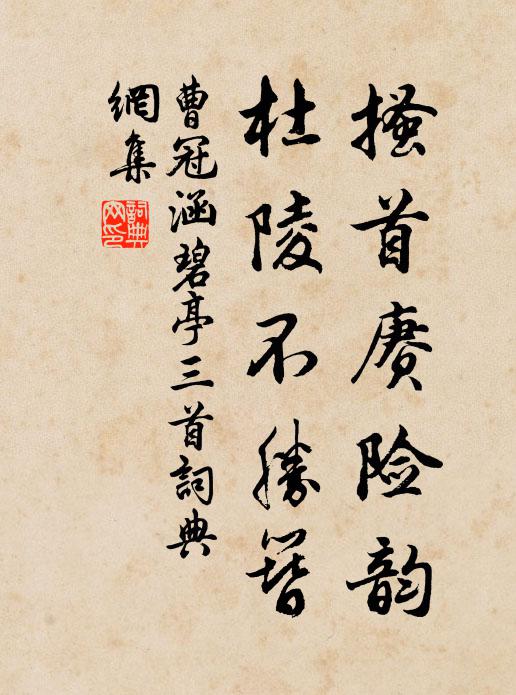 搔首赓险韵
杜陵不勝簪
曹冠涵碧亭三首詞典
網集
詞典
网印